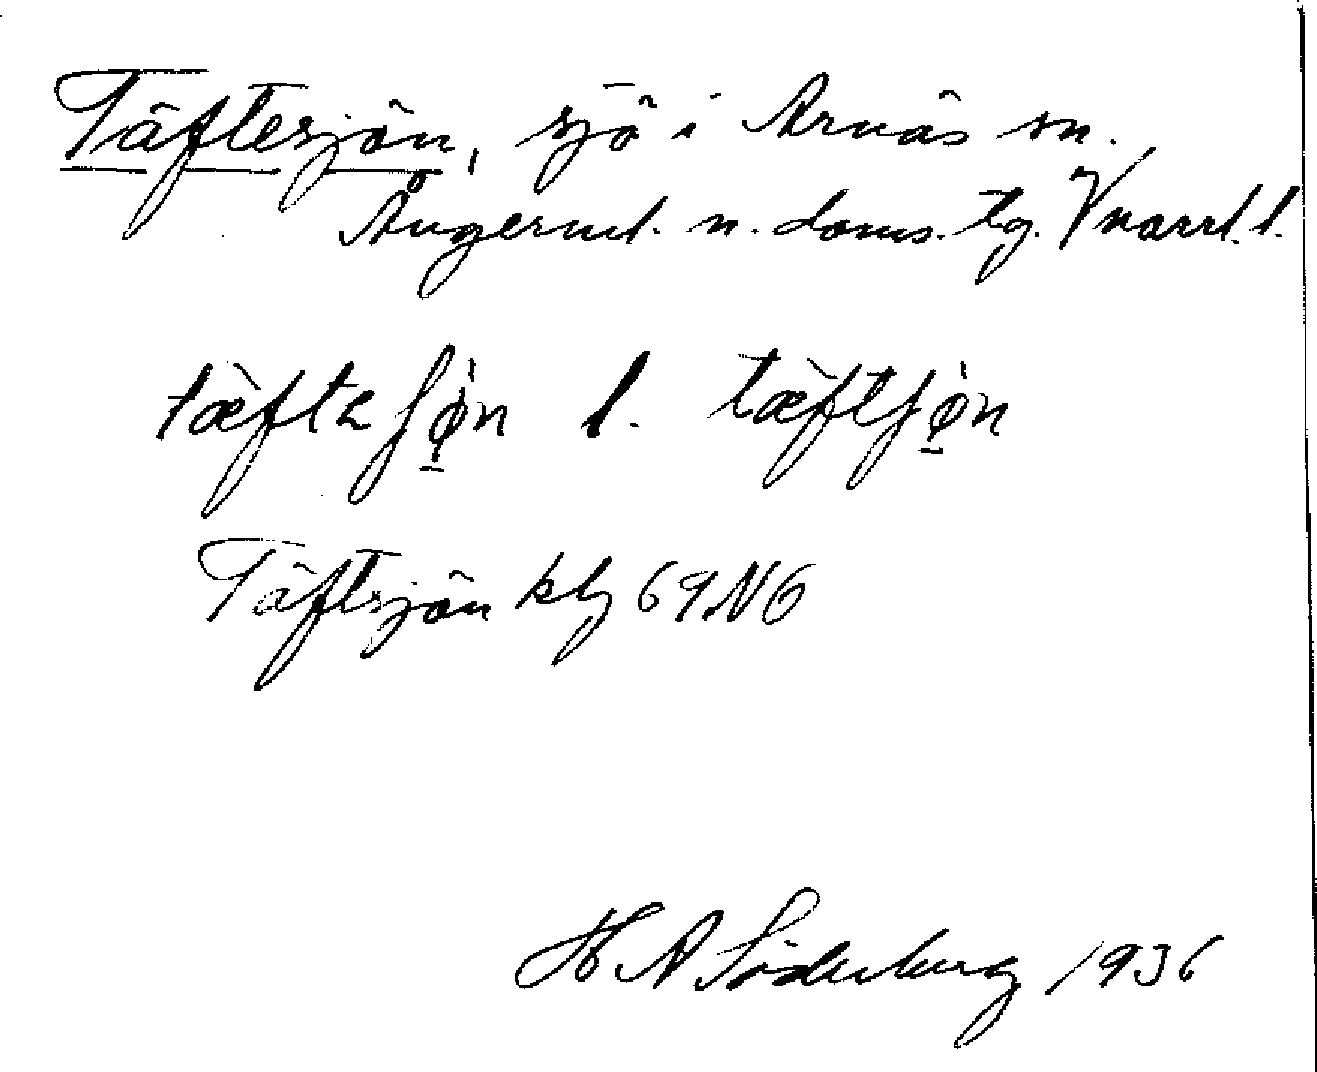 Täftesjön, sjö i Arnäs sn.
Ångerml. n. doms. tg. Vnorrl. l.
tæ̀ftɛʃø̠̀n l. tæ̀ftʃø̠̀n
Täftsjön kbl 69NO
H A Söderberg 1936